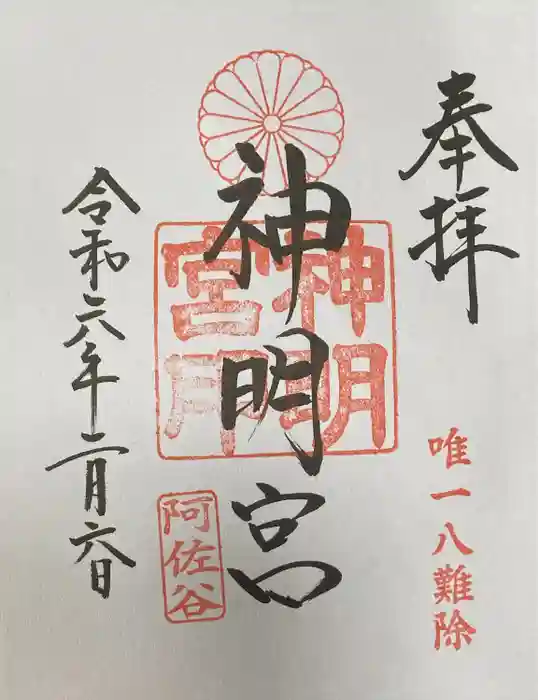 奉拝
唯一八難除
神明宮
神明
宮
阿佐谷
令和六年二月六日